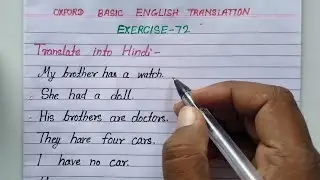 OXFORD BASIC ENGLISH TRANSLATION
EXERCISE-72
Translate into Hindi:-
My brother has a watch.
She had a doll.
His brothers are doctors.
They have four cars.
I have no car.